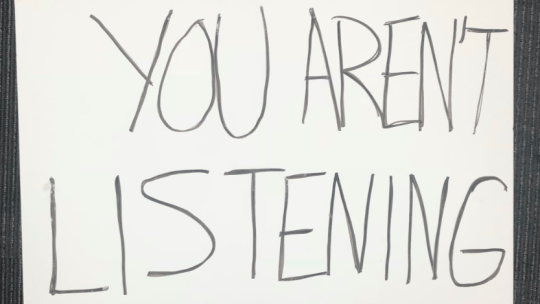 YOU AREN'T
LISTENING